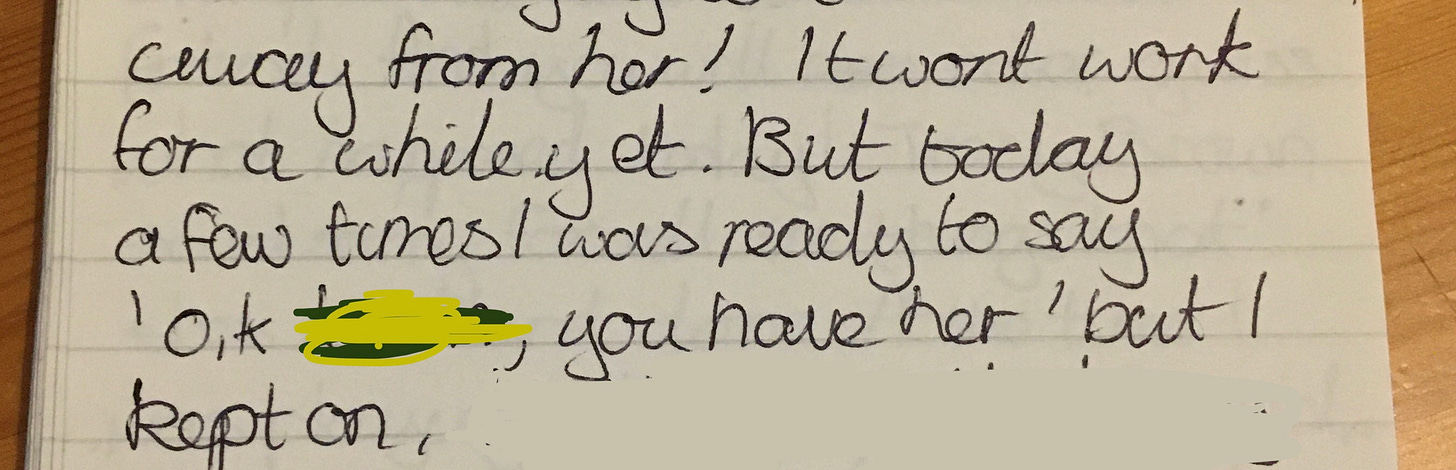 away from her! It wont work
for a while yet. But today
a few times I was ready to say
'O.k , you have her' but I
kept on,